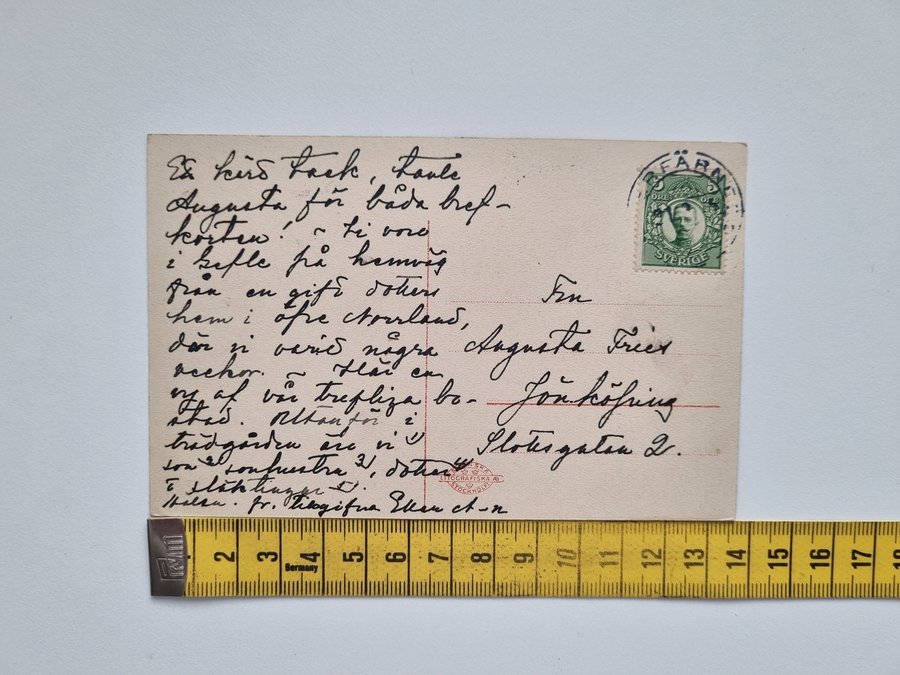 En kärd tack, tant
Augusta för båda bref-
korten! ~ Vi voro
i Gefle på hemväg
från en gift dotters
hem i öfre Norrland,
där vi varit några
veckor. ~ Här en
vy af vår trefliga bo-
stad. Utanför i
trädgården äre vi 1)
son 2) sonhustru 3), dotter 4)
i släktingar 5).
Hälsn. fr. tillgifna Ellen A-n
ÖRE
5
SVERIGE
Fru
Augusta Fries
Jönköping
Slottsgatan 2.
LITOGRAFISKA AB
STOCKHOLM
Prym
2 3 4 5 6 7 8 9 10 11 12 13 14 15 16 17 18
Germany